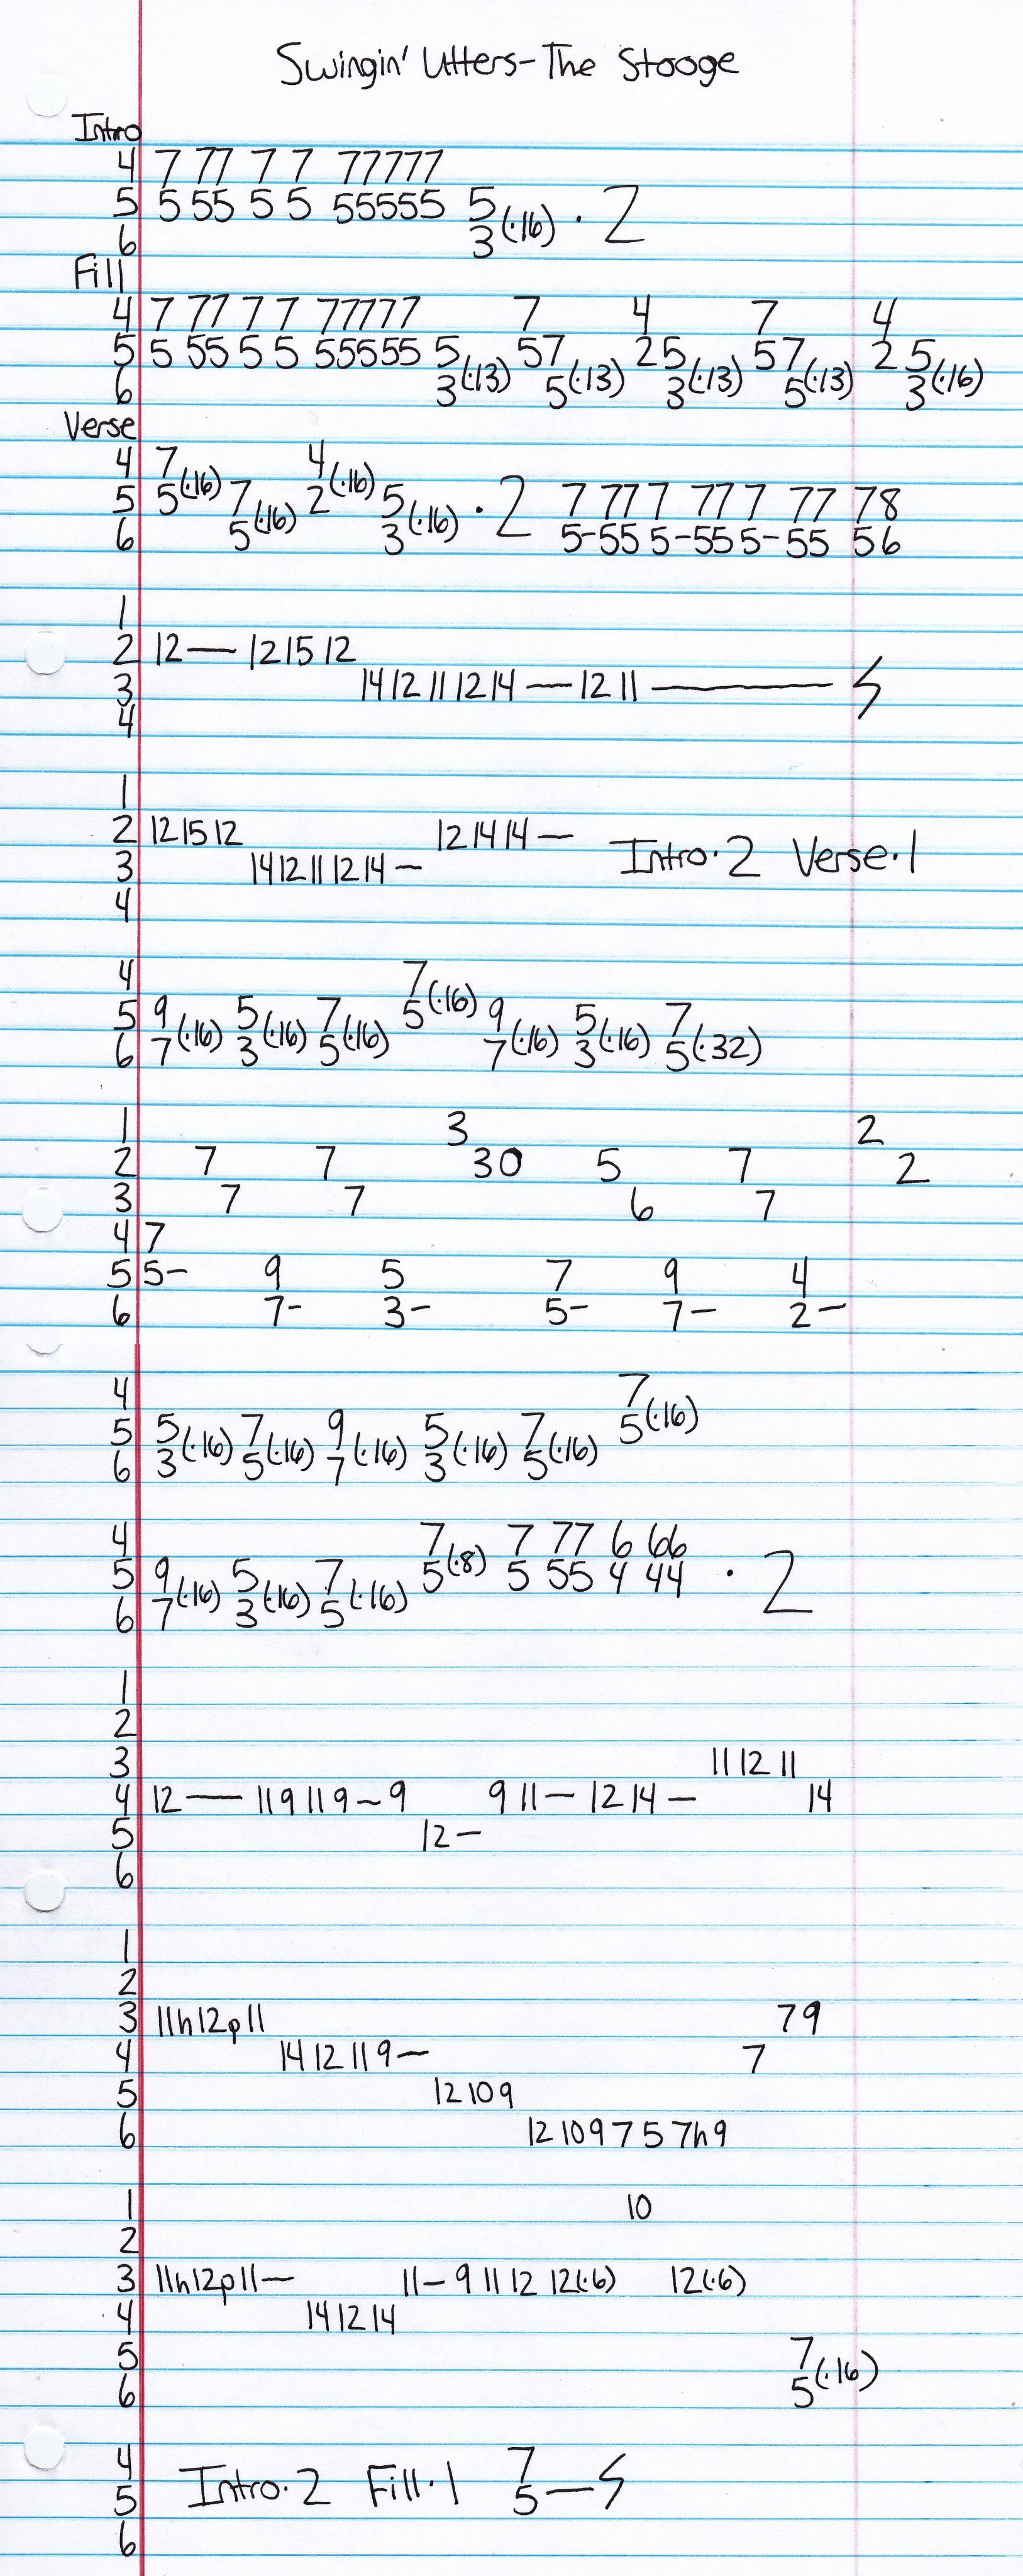 Swingin' Utters-The Stooge
Intro
4 7 77 7 7 77777
5 5 55 5 5 55555 5
6 3(·16) · 2
Fill
4 7 77 7 7 77777 7 4 7 4
5 5 55 5 5 55555 5 57 25 57 2 5
6 3(·13) 5(·13) 3(·13) 5(·13) 3(·16)
Verse
4 7 4
5 5(·16) 7 2(·16) 5 7 777 777 77 78
6 5(·16) 3(·16) · 2 5-55 5-55 5-55 56
1
2 12— 121512
3 1412111214—1211——— ϟ
4
1
2 121512 121414—
3 1412111214— Intro·2 Verse·1
4
4 7
5 9 5 7 5(·16) 9 5 7
6 7(·16) 3(·16) 5(·16) 7(·16) 3(·16) 5(·32)
1 3 2
2 7 7 30 5 7 2
3 7 7 6 7
4 7
5 5- 9 5 7 9 4
6 7- 3- 5- 7- 2-
4 7
5 5 7 9 5 7 5(·16)
6 3(·16) 5(·16) 7(·16) 3(·16) 5(·16)
4 7 7 77 6 66
5 9 5 7 5(·8) 5 55 4 44 · 2
6 7(·16) 3(·16) 5(·16)
1
2
3 11 12 11
4 12— 119 119-9 9 11-12 14- 14
5 12-
6
1
2
3 11h12p11 79
4 14 12 11 9- 7
5 12 109
6 12 109 7 5 7h9
1 10
2
3 11h12p11- 11-9 11 12 12(·6) 12(·6)
4 14 12 14
5 7
6 5(·16)
4 7
5 Intro·2 Fill·1 5—ϟ
6